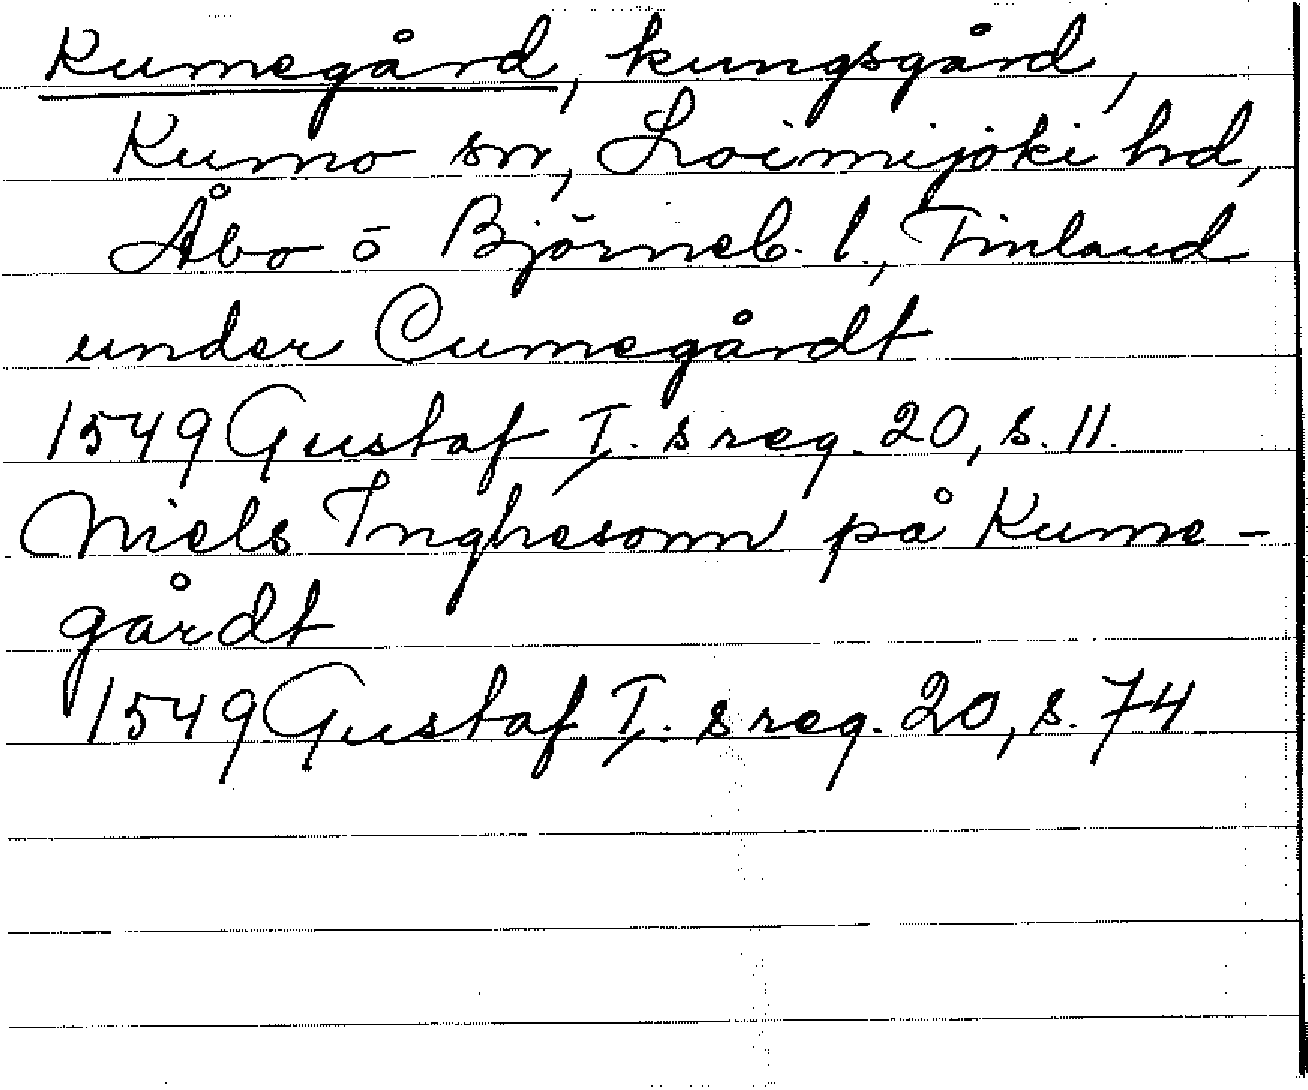 Kumegård, kungsgård,
Kumo sn, Loimijoki hd,
Åbo o Björneb. l., Finland
under Cumegårdt
1549 Gustaf I. s reg. 20, s. 11.
Niels Inghesonn på Kume-
gårdt
1549 Gustaf I. s reg. 20, s. 74